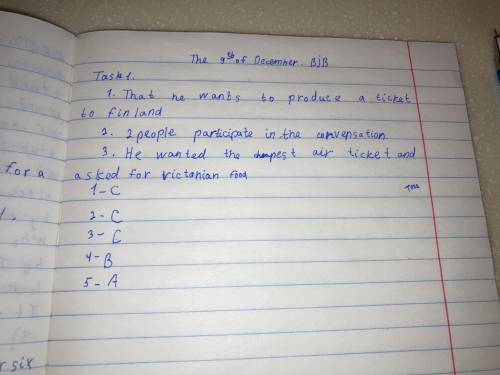 The 9th of December. BJB
Task 1.
1. That he wants to produce a ticket
to finland
2. 2 people participate in the conversation.
3. He wanted the cheapest air ticket and
for a
asked for victanian food
1 - C
2 - C
3 - C
4 - B
5 - A
r six